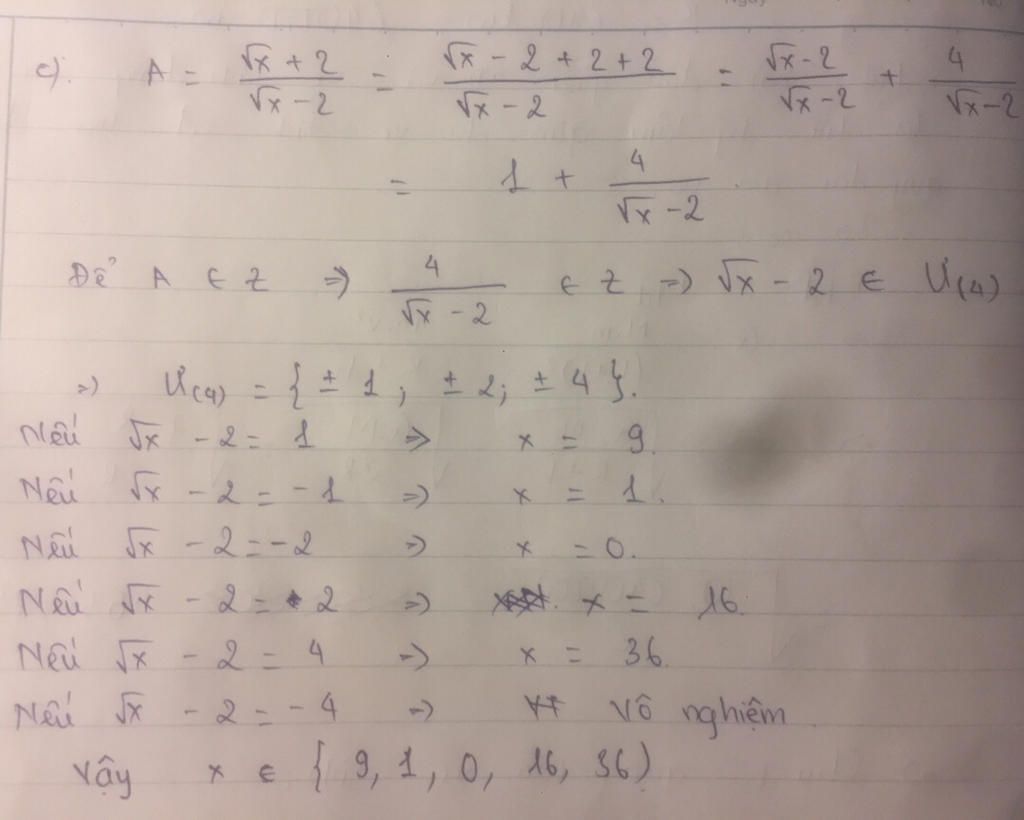 c). A = \frac{\sqrt{x} + 2}{\sqrt{x} - 2} = \frac{\sqrt{x} - 2 + 2 + 2}{\sqrt{x} - 2} = \frac{\sqrt{x} - 2}{\sqrt{x} - 2} + \frac{4}{\sqrt{x} - 2}
= 1 + \frac{4}{\sqrt{x} - 2}
Để A ∈ Z => \frac{4}{\sqrt{x} - 2} ∈ Z => \sqrt{x} - 2 ∈ Ư(4)
=> Ư(4) = { ± 1 ; ± 2; ± 4 }.
Nếu √x - 2 = 1 => x = 9.
Nếu √x - 2 = -1 => x = 1.
Nếu √x - 2 = -2 => x = 0.
Nếu √x - 2 = 2 => x = 16.
Nếu √x - 2 = 4 => x = 36.
Nếu √x - 2 = -4 => vô nghiệm
Vậy x ∈ { 9, 1, 0, 16, 36 )